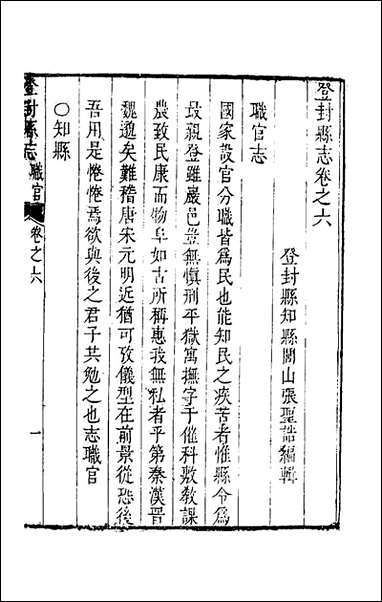 登封縣志卷之六
登封縣知縣關山張聖誥編輯
職官志
國家設官分職皆爲民也能知民之疾苦者惟縣令爲
最親登雖巖邑豈無慎刑平獄寓撫字于催科敷敎課
農致民康而物阜如古所稱惠我無私者乎第秦漢晉
魏邈矣難稽唐宋元明近猶可攷儀型在前景從恐後
吾用是惓惓焉欲與後之君子共勉之也志職官
○知縣
登封縣志
職官
卷之六
一